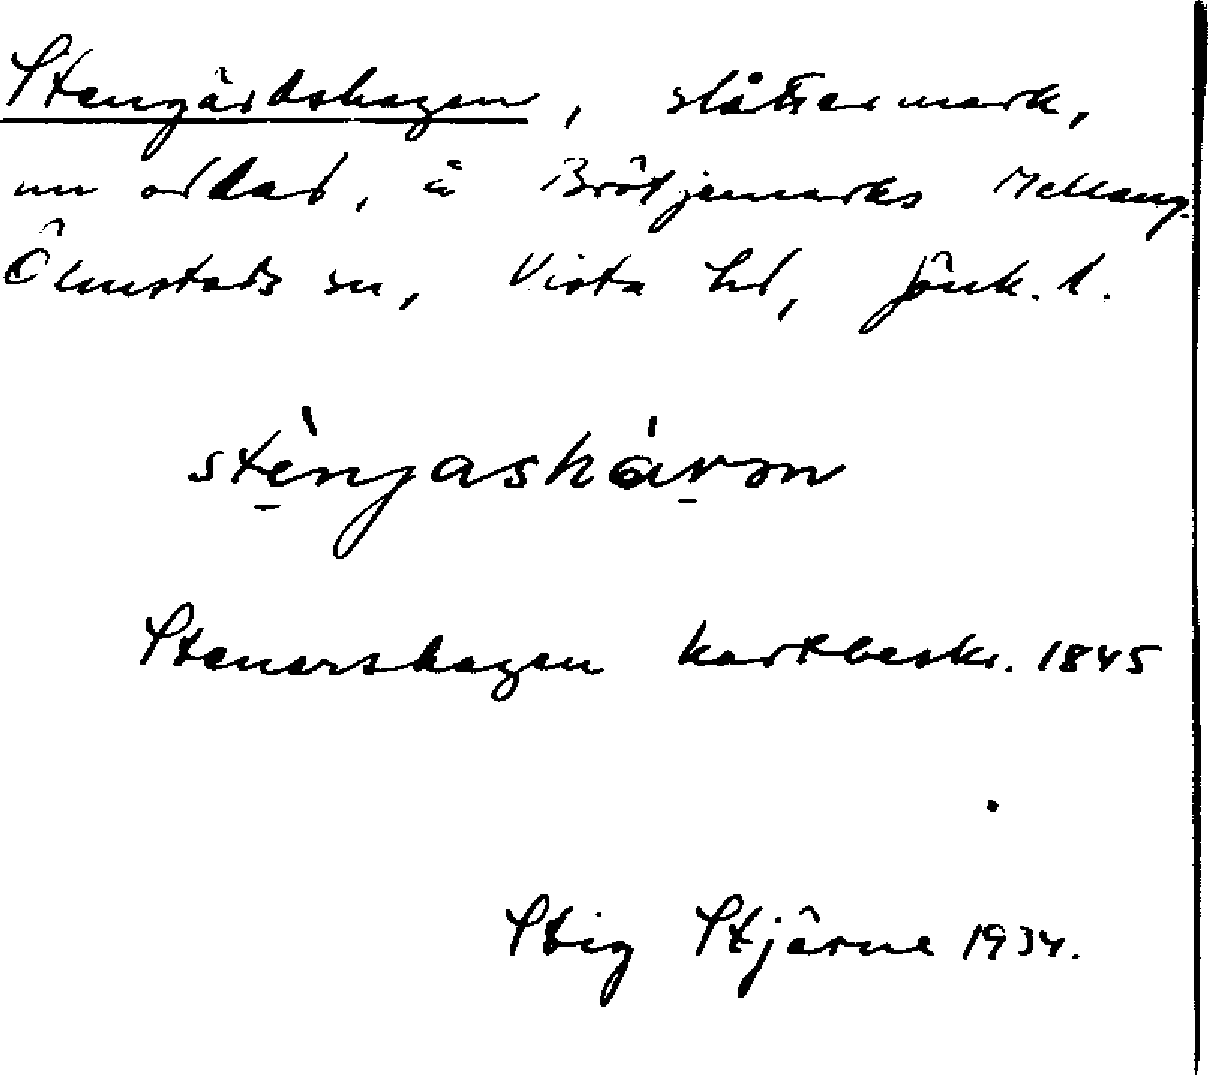 Stengärdshagen, slåttermark,
nu odlad, å Brötjemarks Mellang.
Ölmstads sn, Vista hd, Jönk. l.
stènjashávm
Stenershagen kartbeskr. 1845
Stig Stjärne 1934.